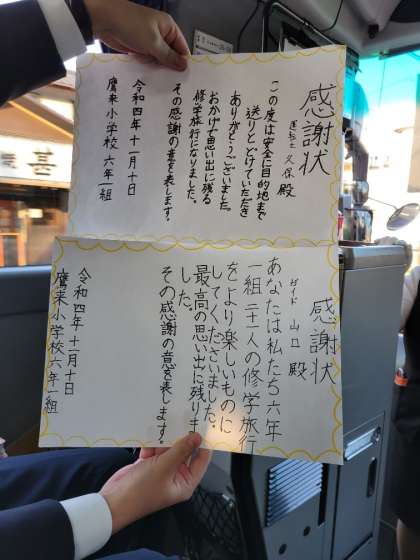 感謝状
運転士 久保 殿
この度は安全に目的地まで
送りとどけていただき
ありがとうございました。
おかげで思い出に残る
修学旅行になりました。
その感謝の意を表します。
令和四年十一月十日
鷹来小学校 六年一組
感謝状
ガイド 山口 殿
あなたは私たち六年
一組二十一人の修学旅行
をより楽しいものに
してくださいました。
最高の思い出に残りま
した。
その感謝の意を表します。
令和四年十一月十日
鷹来小学校六年一組